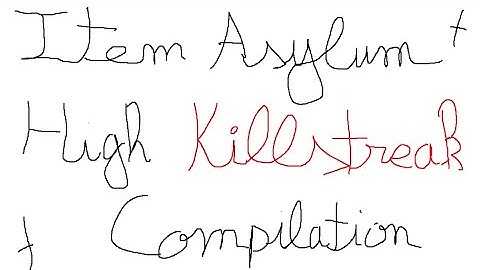 Item Asylum
High Killstreak
Compilation